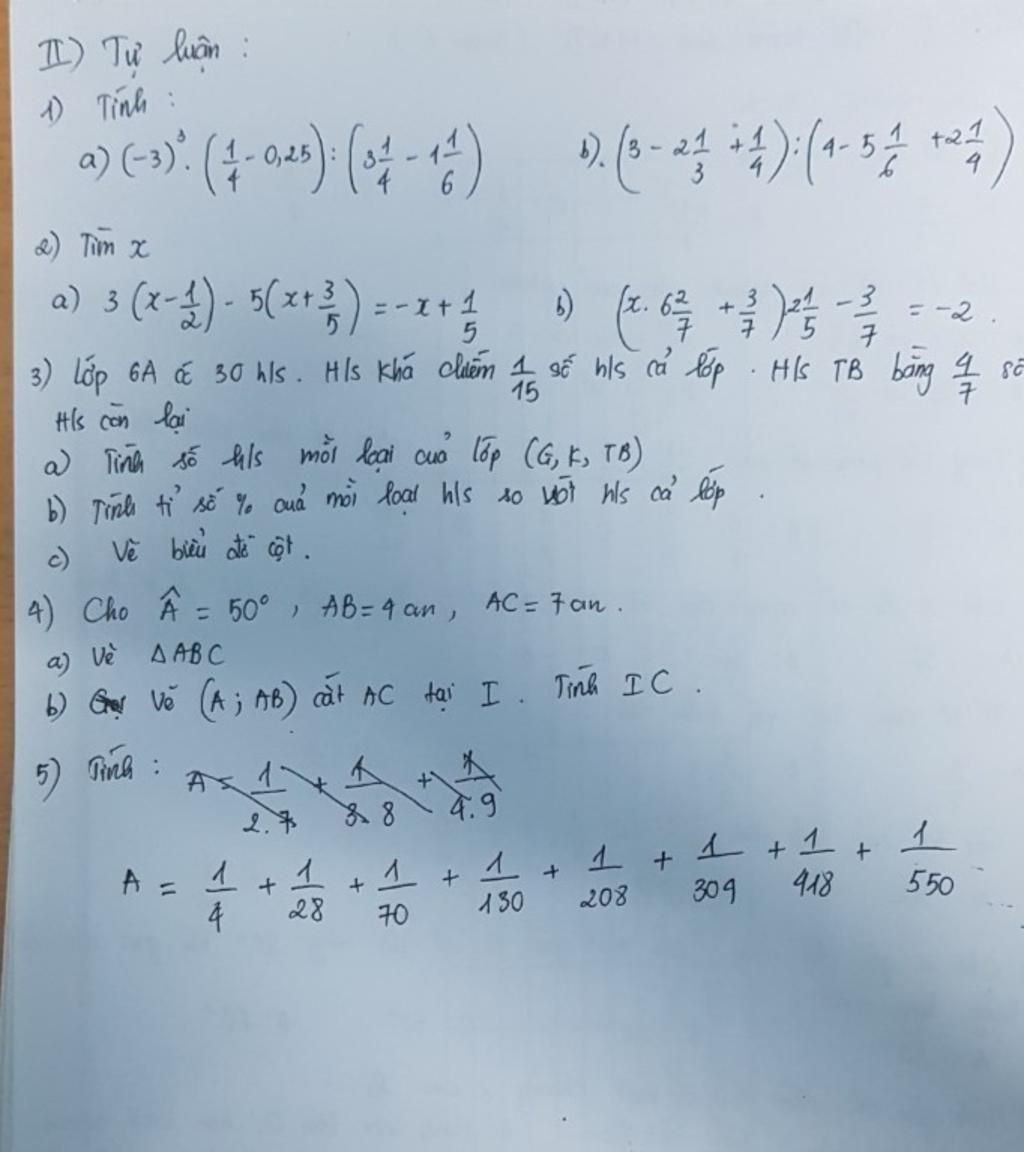 II) Tự luận :
1) Tính :
a) (-3)³. (1/4 - 0,25) : (3 1/4 - 1 1/6)    b). (3 - 2 1/3 + 1/4) : (4 - 5 1/6 + 2 1/4)
2) Tìm x
a) 3 (x - 1/2) - 5(x + 3/5) = -x + 1/5    b) (x. 6 2/7 + 3/7) 2 1/5 - 3/7 = -2 .
3) Lớp 6A có 30 h/s. H/s khá chiếm 1/15 số h/s cả lớp . H/s TB bằng 4/7 số
H/s còn lại
a) Tính số h/s mỗi loại của lớp (G, K, TB)
b) Tính tỉ số % của mỗi loại h/s so với h/s cả lớp .
c) Vẽ biểu đồ cột .
4) Cho Â = 50° , AB = 4 cm , AC = 7 cm .
a) Vẽ ΔABC
b) Vẽ (A ; AB) cắt AC tại I . Tính IC .
5) Tính : A = 1/2.7 + 1/3.8 + 1/4.9
A = 1/4 + 1/28 + 1/70 + 1/130 + 1/208 + 1/304 + 1/418 + 1/550